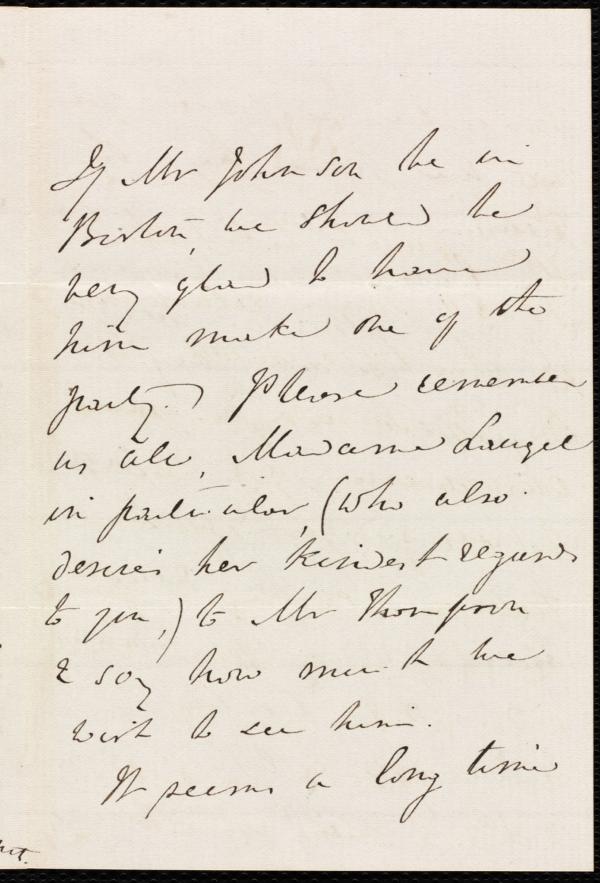 If Mr Johnson be in
Boston, we should be
very glad to have
him make one of the
party.) Please remember
us all, Madame Laugel
in particular, (who also
desires her kindest regards
to you,) to Mr Thompson
& say how much we
wish to see him.
It seems a long time